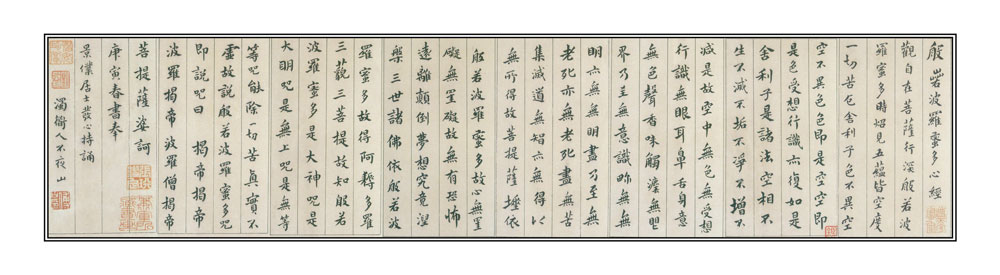 般若波羅蜜多心經
觀自在菩薩行深般若波
羅蜜多時照見五蘊皆空度
一切苦厄舍利子色不異空
空不異色色即是空空即
是色受想行識亦復如是
舍利子是諸法空相不
生不滅不垢不淨不增不
減是故空中無色無受想
行識無眼耳鼻舌身意
無色聲香味觸法無眼
界乃至無意識界無無
明亦無無明盡乃至無
老死亦無老死盡無苦
集滅道無智亦無得以
無所得故菩提薩埵依
般若波羅蜜多故心無罣
礙無罣礙故無有恐怖
遠離顛倒夢想究竟涅
槃三世諸佛依般若波
羅蜜多故得阿耨多羅
三藐三菩提故知般若
波羅蜜多是大神咒是
大明咒是無上咒是無等
等咒能除一切苦真實不
虛故說般若波羅蜜多咒
即說咒曰 揭帝揭帝
波羅揭帝 波羅僧揭帝
菩提薩婆訶
庚寅春書奉
居士發心持誦
人不夜山